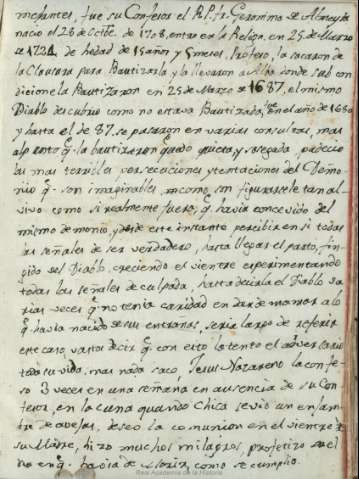 mejantes, fue su Confesor el R. P. fr. Geronimo de
nacio el 28 de Octbe. de 1708, entro en la Relign. en 25 de Marzo
de 1724, de hedad de 15 años y 5 meses, Profeso, la sacaron de
la Clausura para Bautizarla, y la llevaron a Alba donde sub con
dicione la Bautizaron en 25 de Marzo de 1687, el mismo
Diablo descubrio como no estava Bautizada, fue en el año de 1680
y hasta el de 87, se pasaron en varias consultas, mas
al punto q. la bautizaron quedo quieta, y sosegada, padecio
las mas terribles persecuciones y tentaciones del Demo-
nio q. son imaginables, como son figurarsele tan al
vivo como si realmente fuese, q. havia concevido del
mismo demonio, y desde este instante percibir en si todas
las señales de ser verdadero, hasta llegar el parto, fin-
gido del Diablo, creciendo el vientre experimentando
todas las señales de culpada, hasta decirla el Diablo va
rias veces q. no tenia caridad en dar de mamar a lo
q. havia nacido de sus entrañas, seria largo de referir
este caso, vasta decir q. con esto la tento el adversario
toda su vida, mas nada saco, Jesus Nazareno la confe-
so 3 veces en una semana en ausencia de su Con
fesor, en la cuna quando Chica se vio un enjam-
bre de avejas, deseo la comunion en el vientre de
su Madre, hizo muchos milagros, profetizo el
en q. havia de Morir, como se cumplio.
Real Academia de la Historia